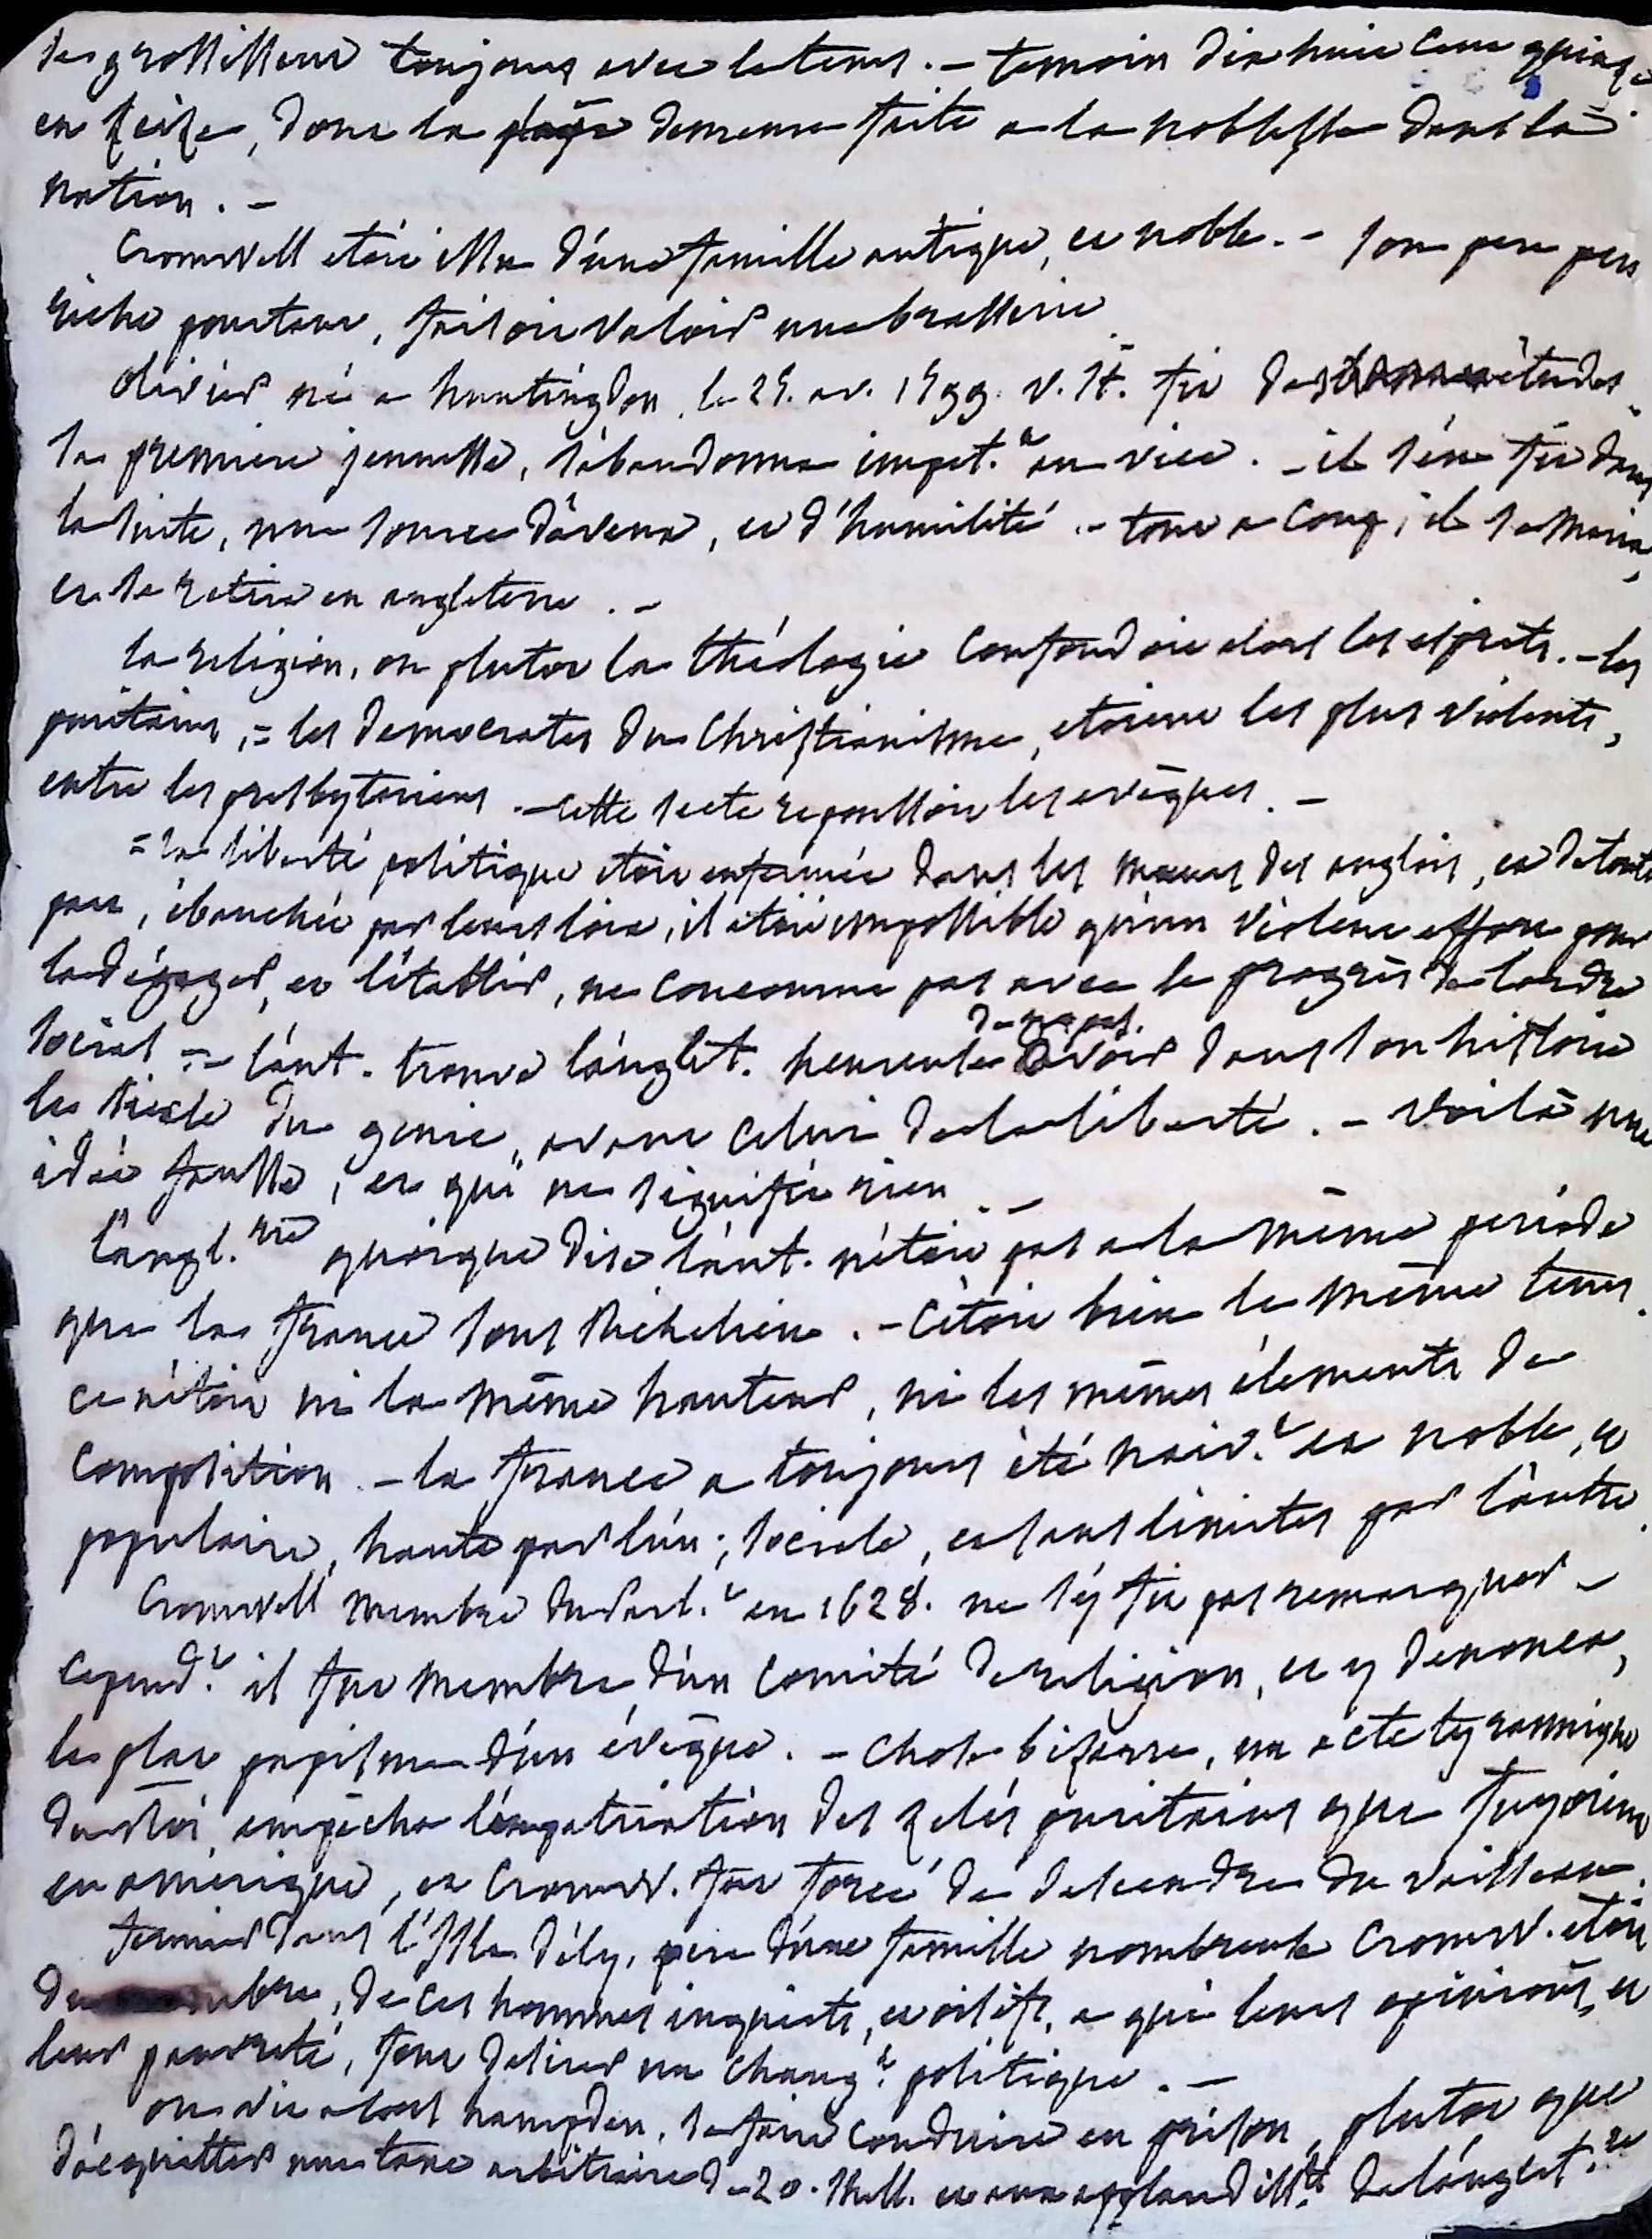 des grossisseurs toujours avec le tems. – temoin dix huit cent quinze
en seize, dont la page demeure faite a la noblesse dans la
nation. –
Cromwell etoit issu d'une famille antique, et noble. – son pere peu
riche pourtant, faisoit valoir une brasserie
olivier né a huntingdon, le 25. av. 1599. v. st. fit des études
sa premiere jeunesse, s'abandonna impet.t au vice. – il s'en fit dans
la suite, une source d'aveux, et d'humilité. – tout a coup, il se maria,
et se retira en angleterre. –
la religion, ou plutot la théologie confondoit alors les esprits. – les
puritains, = les democrates du Christianisme, etoient les plus violents,
entre les presbyteriens. – cette secte repoussoit les evêques. –
= la liberté politique etoit enfermée dans les mœurs des anglois, et de toute
part, ébauchée par leurs loix, il etoit impossible qu'un violent effort pour
la dégager, et l'établir, ne concourut pas avec le progrès de l'ordre
social = – l'aut. trouve l'anglet. heureuse de n'a pas. avoir dans son histoire
le siecle du genie, avant celui de la liberté. – voilà une
idée fausse, et qui ne signifie rien. –
L'angl.rre quoique dise l'aut. n'étoit pas a la même periode
que la france sous Richelieu. – C'étoit bien le même tems.
ce n'étoit ni la même hauteur, ni les mêmes élements de
composition. – la france a toujours été naiv.t et noble, et
populaire, haute par l'un; sociale, et sans limites par l'autre.
Cromwell membre du parl.t en 1628. ne s'y fit pas remarquer –
cepend.t il fut membre d'un comité de religion, et y denonça,
le plat papisme d'un évêque. – chose bizarre, un acte tyrannique
du Roi empêcha l'expatriation des zelés puritains que fuyoient
en amérique, et Cromw. fut forcé de descendre du vaisseau.
fermier dans l'Isle d'Ely, pere d'une famille nombreuse Cromw. etoit
du nombre, de ces hommes inquiets, et oisifs, a qui leurs opinions, et
leur pauvreté, font desirer un chang.t politique. –
on vit alors hampden, se faire conduire en prison, plutot que
d'acquitter une taxe arbitraire de 20. shell. et aux applaudiss.ts de l'anglet.re